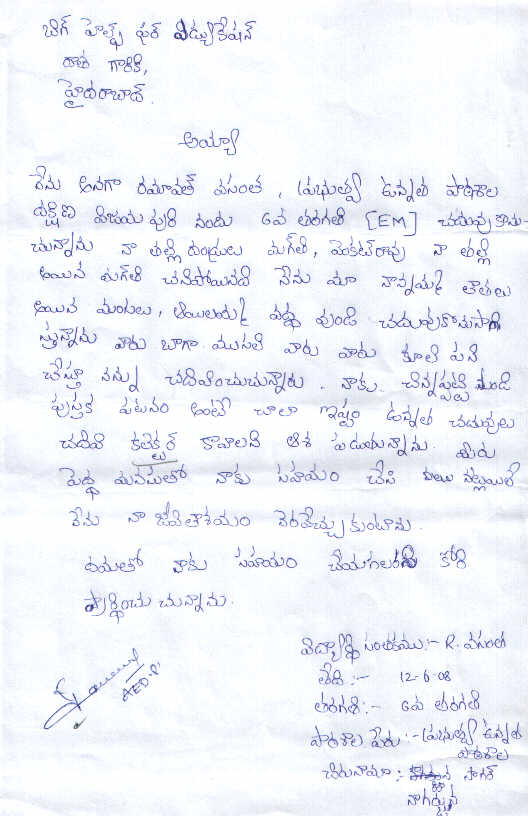 బిగ్ హెల్ప్ ఫర్ ఎడ్యుకేషన్
దాత గారికి,
హైదరాబాద్.
అయ్యా
నేను అనగా రమావత్ వసంత, ప్రభుత్వ ఉన్నత పాఠశాల
దక్షిణ విజయపురి నందు 6వ తరగతి [EM] చదువుకొను-
చున్నాను నా తల్లి దండ్రులు మగతి, వెంకట్రావు నా తల్లి
అయిన మగతి చనిపోయినది నేను మా నాన్నమ్మ తాతలు
అయిన మంగులు, వద్ద వుండి చదువుకొనుసాగి
స్తున్నాను వారు బాగా ముసలి వారు వారు కూలి పని
చేస్తూ నన్ను చదివించుచున్నారు. నాకు చిన్నప్పటి నుండి
పుస్తక పఠనం అంటే చాలా ఇష్టం ఉన్నత చదువులు
చదివి కలెక్టర్ కావాలని ఆశ పడుతున్నాను. మీరు
పెద్ద మనసుతో నాకు సహాయం చేసి
నేను నా జీవితాశయం నెరవేర్చుకుంటాను.
దయతో నాకు సహాయం చేయగలరని కోరి
ప్రార్థించు చున్నాను.
విద్యార్థి సంతకము:- R. వసంత
తేది:- 12-6-08
తరగతి:- 6వ తరగతి
పాఠశాల పేరు:- ప్రభుత్వ ఉన్నత
పాఠశాల
చిరునామా: సాగర్
నాగార్జున